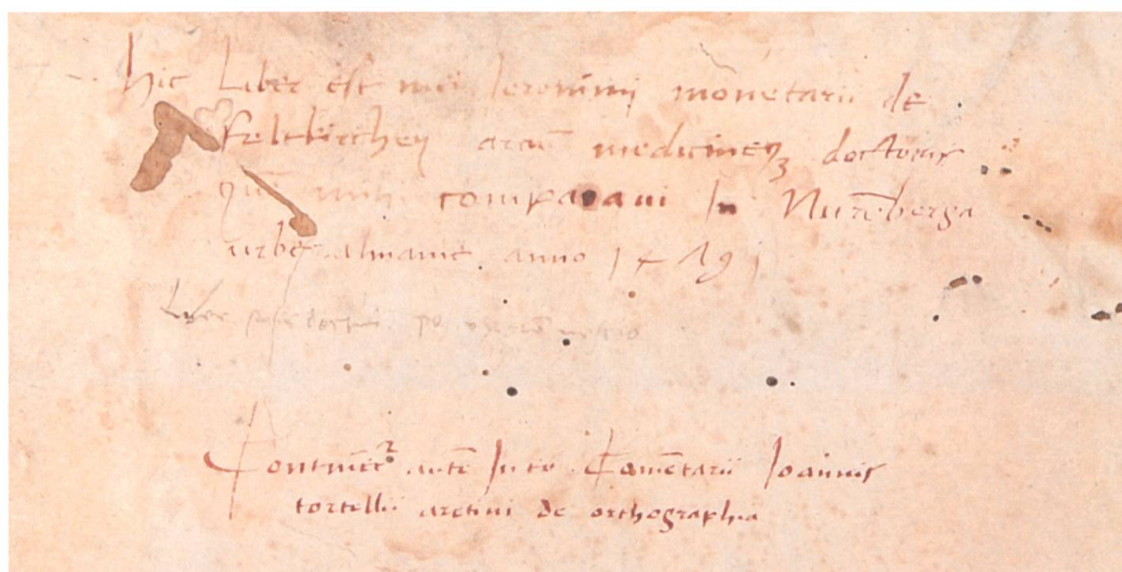 hic Liber est mei Ieronimi monetarii de
feltkirchen arcīū medicineqꝫ doctoris
quē mihi comparavi In Nurēberga
urbe almanie. anno 1491
Liber
Contineꝛ autē In eo Comētarii Ioannis
tortelli aretini de orthographia